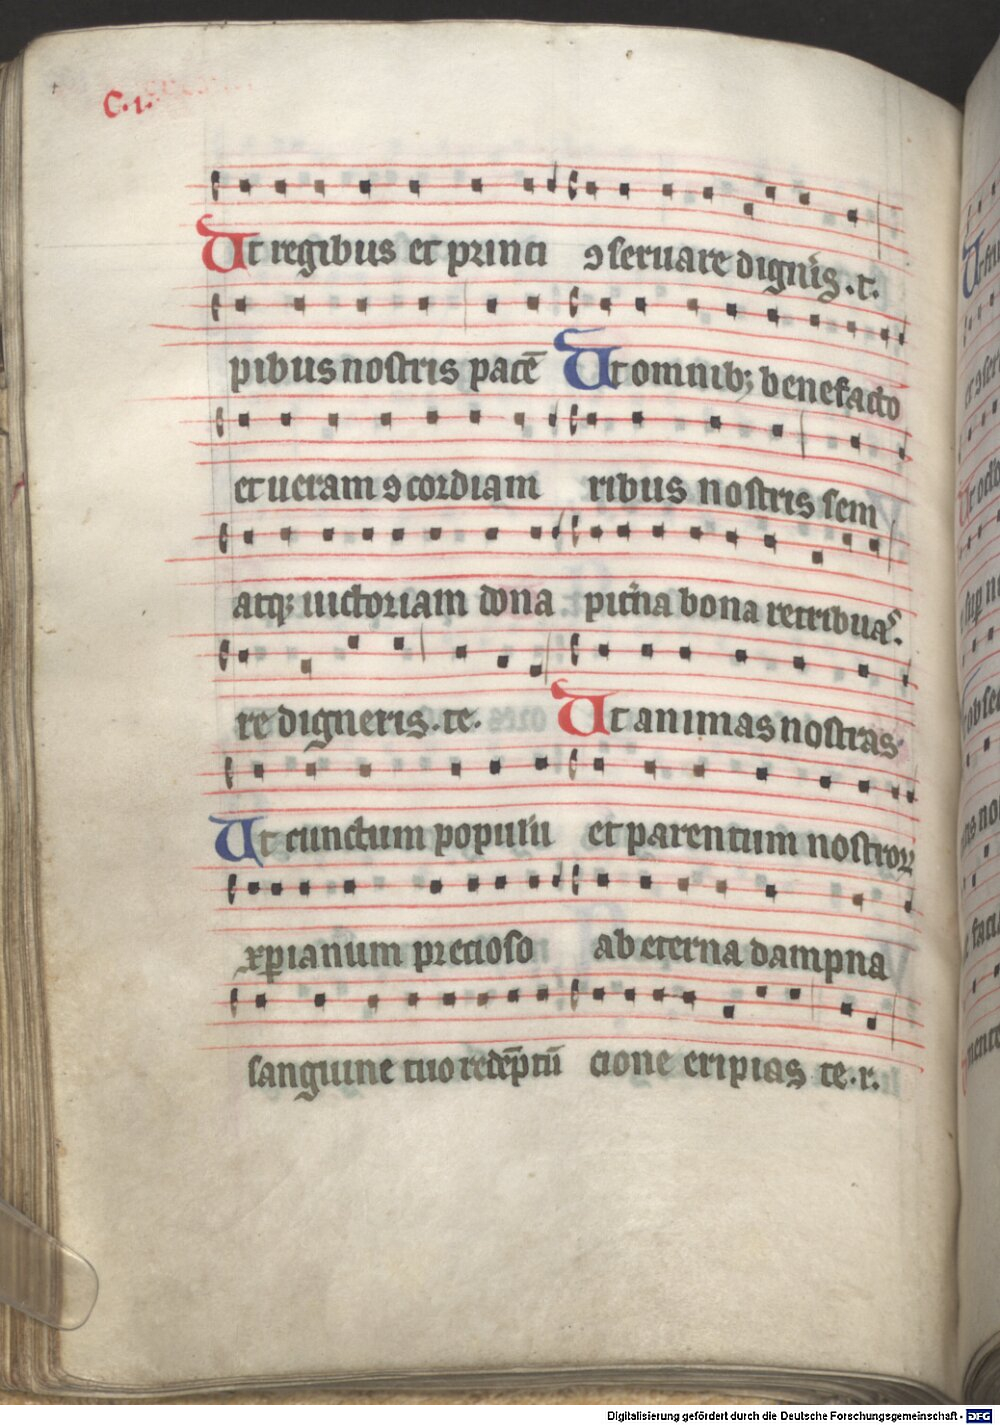 C.i.
Ut regibus et princi
pibus nostris pacē
et ueram ꝯcordiam
atqꝫ uictoriam dona
re digneris.te.
Ut cunctum populū
xp̄ianum precioso
sanguine tuo redēptū
ꝯseruare dignr̄is.t.
Ut omnibꝫ benefacto
ribus nostris sem
pitn̄a bona retribuas.
Ut animas nostras
et parentum nostroꝝ
ab eterna dampna
cione eripias te.r.
Digitalisierung gefördert durch die Deutsche Forschungsgemeinschaft - DFG